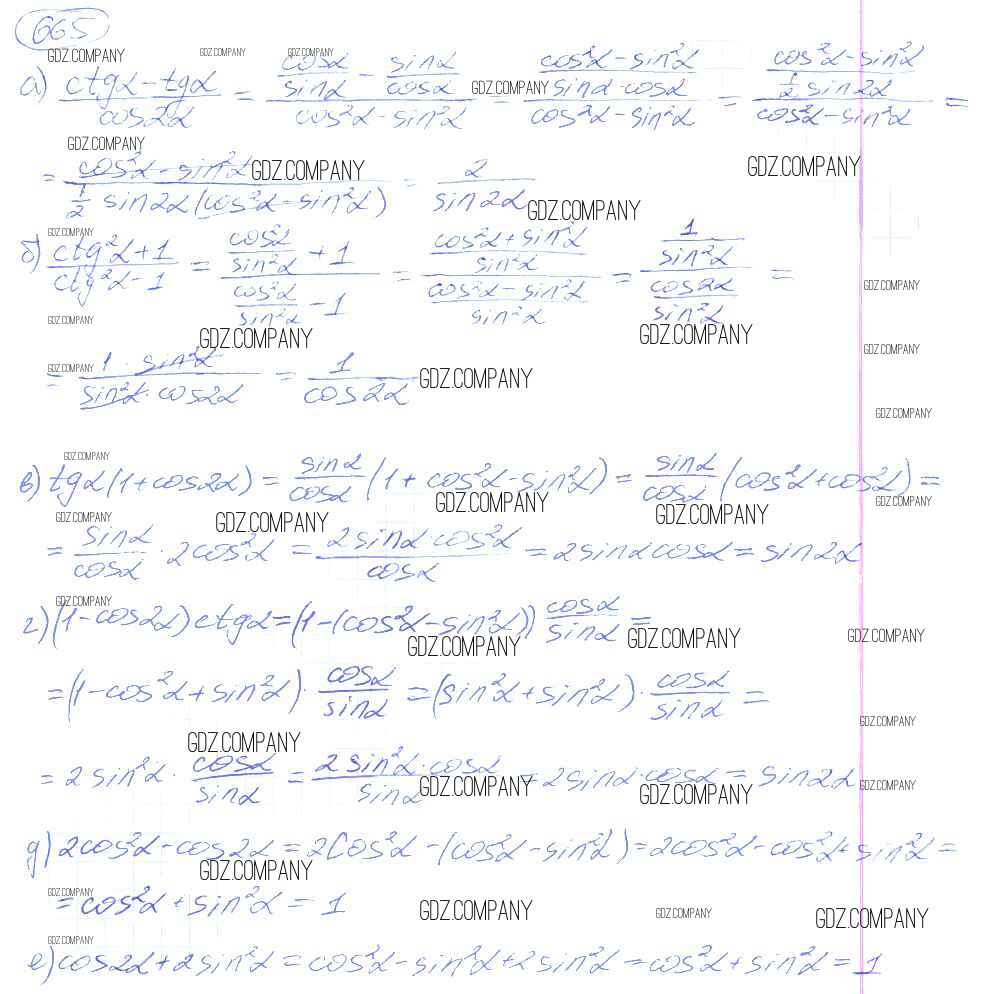 665
GDZ.COMPANY GDZ.COMPANY GDZ.COMPANY
а) (ctgα - tgα)/(cos2α) = (cosα/sinα - sinα/cosα)/(cos²α - sin²α) = ((cos²α - sin²α)/(sinα·cosα))/(cos²α - sin²α) = ((cos²α - sin²α)/(1/2 sin2α))/(cos²α - sin²α) =
GDZ.COMPANY GDZ.COMPANY
= (cos²α - sin²α)/(1/2 sin2α(cos²α - sin²α)) = 2/(sin2α)
GDZ.COMPANY GDZ.COMPANY GDZ.COMPANY
GDZ.COMPANY
б) (ctg²α + 1)/(ctg²α - 1) = (cos²α/sin²α + 1)/(cos²α/sin²α - 1) = ((cos²α + sin²α)/sin²α)/((cos²α - sin²α)/sin²α) = (1/sin²α)/(cos2α/sin²α) =
GDZ.COMPANY
GDZ.COMPANY GDZ.COMPANY GDZ.COMPANY
GDZ.COMPANY
= (1·sin²α)/(sin²α·cos2α) = 1/(cos2α)
GDZ.COMPANY GDZ.COMPANY
GDZ.COMPANY
GDZ.COMPANY
в) tgα(1 + cos2α) = sinα/cosα (1 + cos²α - sin²α) = sinα/cosα (cos²α + cos²α) =
GDZ.COMPANY GDZ.COMPANY
GDZ.COMPANY GDZ.COMPANY GDZ.COMPANY
= sinα/cosα · 2cos²α = (2sinα·cos²α)/cosα = 2sinαcosα = sin2α
GDZ.COMPANY
г) (1 - cos2α)ctgα = (1 - (cos²α - sin²α)) cosα/sinα =
GDZ.COMPANY GDZ.COMPANY GDZ.COMPANY
= (1 - cos²α + sin²α) · cosα/sinα = (sin²α + sin²α) · cosα/sinα =
GDZ.COMPANY
GDZ.COMPANY
= 2sin²α · cosα/sinα = (2sin²α·cosα)/sinα = 2sinα·cosα = sin2α
GDZ.COMPANY GDZ.COMPANY GDZ.COMPANY
д) 2cos²α - cos2α = 2cos²α - (cos²α - sin²α) = 2cos²α - cos²α + sin²α =
GDZ.COMPANY
GDZ.COMPANY
= cos²α + sin²α = 1
GDZ.COMPANY GDZ.COMPANY GDZ.COMPANY
GDZ.COMPANY
е) cos2α + 2sin²α = cos²α - sin²α + 2sin²α = cos²α + sin²α = 1